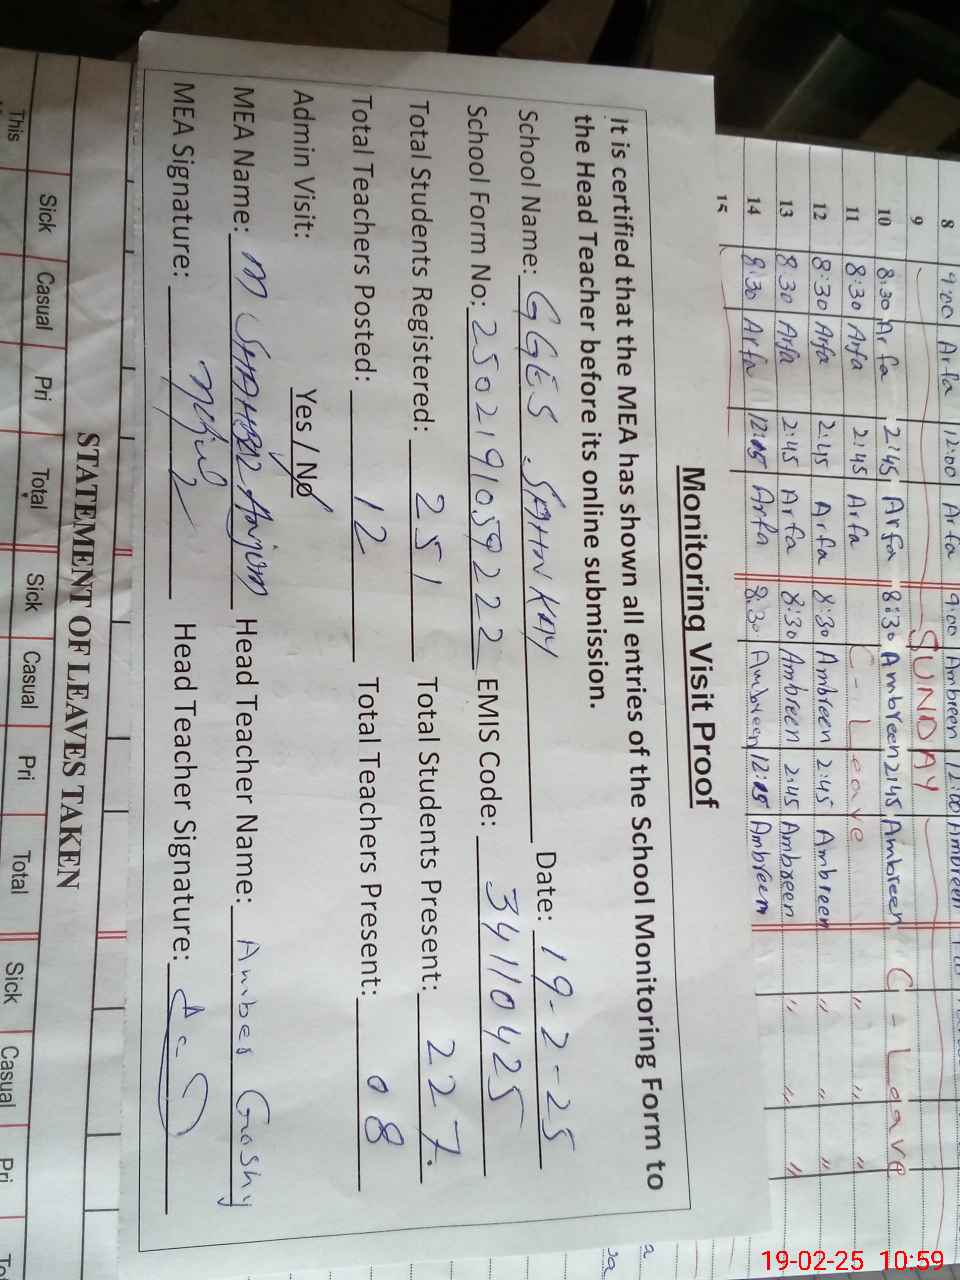 8 9:00 Arfa 12:00 Arfa 9:00 Ambreen 12:00 Ambreen
9 SUNDAY
10 8:30 Arfa 2:45 Arfa 8:30 Ambreen 2:45 Ambreen C - Leave
11 8:30 Arfa 2:45 Arfa C - Leave " " "
12 8:30 Arfa 2:45 Arfa 8:30 Ambreen 2:45 Ambreen " " "
13 8:30 Arfa 2:45 Arfa 8:30 Ambreen 2:45 Ambreen " " "
14 8:30 Arfa 12:05 Arfa 8:30 Ambreen 12:05 Ambreen
15
Monitoring Visit Proof
It is certified that the MEA has shown all entries of the School Monitoring Form to
the Head Teacher before its online submission.
School Name: GGES Date: 19-2-25
School Form No: 25021910592 22 EMIS Code: 34110425
Total Students Registered: 251 Total Students Present: 227.
Total Teachers Posted: 12 Total Teachers Present: 08
Admin Visit: Yes / No
MEA Name: M Anjum Head Teacher Name: Amber
MEA Signature: Head Teacher Signature:
STATEMENT OF LEAVES TAKEN
Sick Casual Pri Total Sick Casual Pri Total Sick Casual Pri
This
19-02-25 10:59